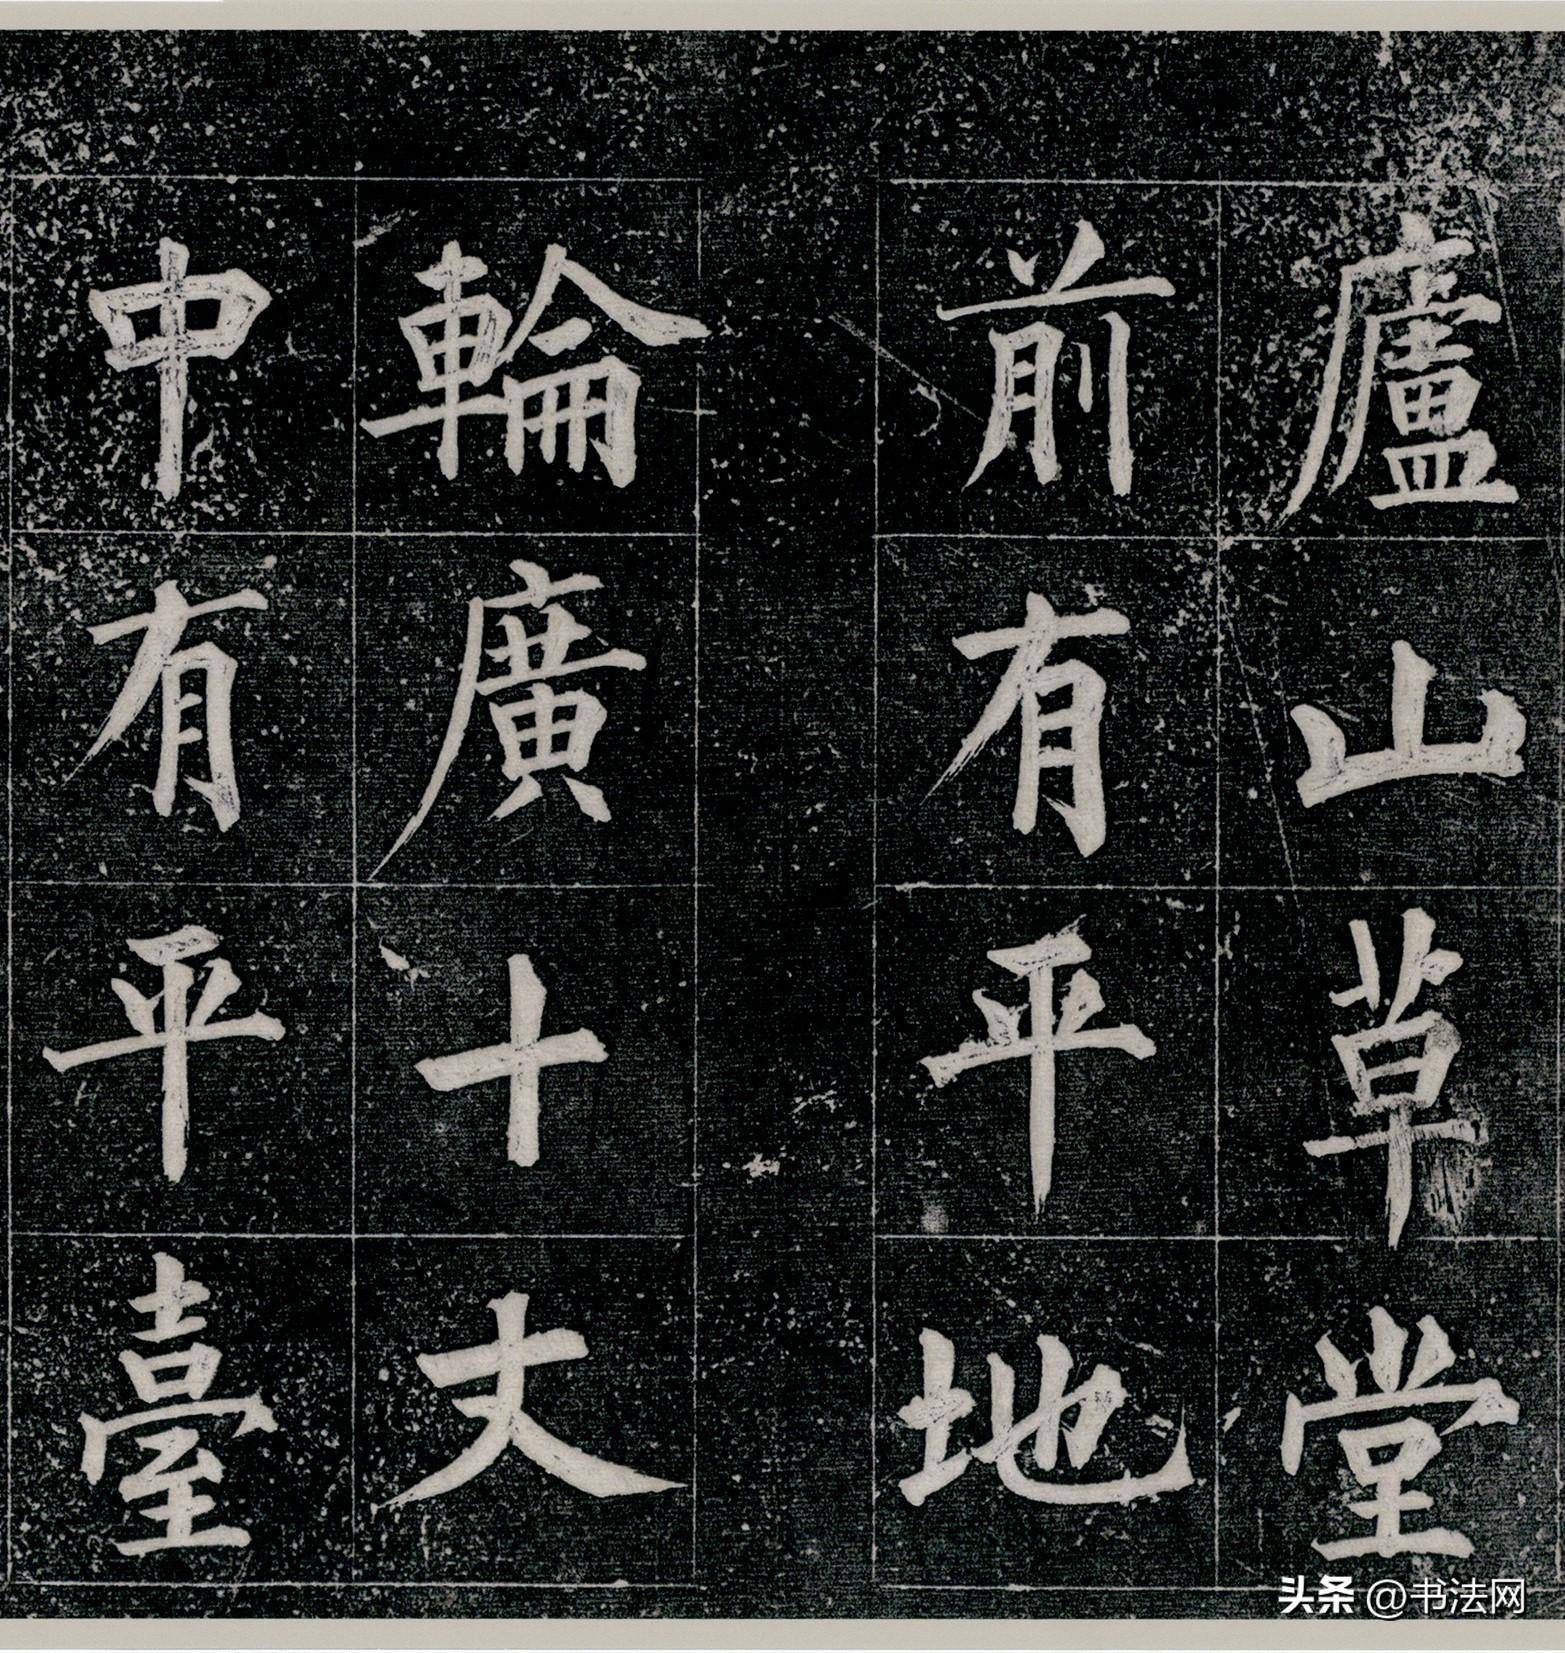 廬山草堂
前有平地
輪廣十丈
中有平臺
头条 @书法网